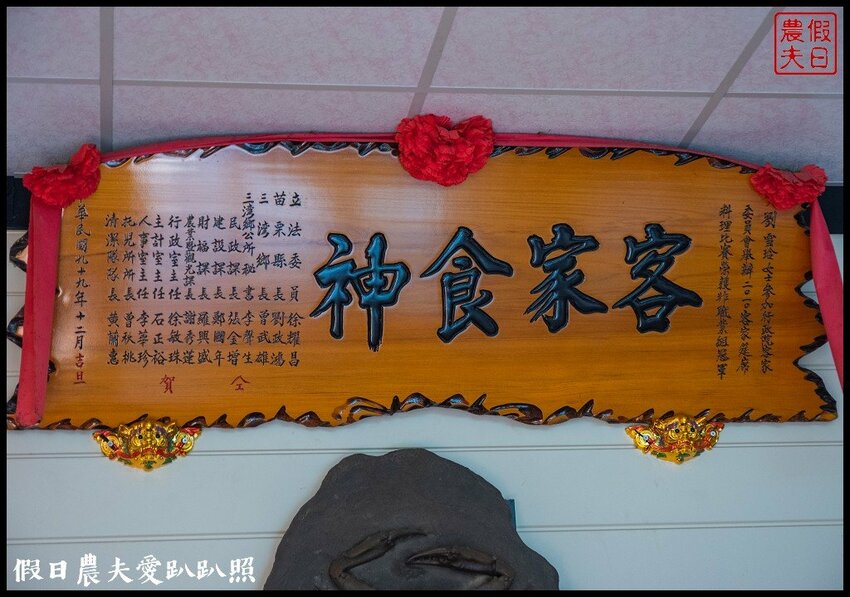 假日
農夫
劉雲玲女士參加行政院客家
委員會舉辦二〇一〇客家筵席
料理比賽榮獲非職業組冠軍
客家食神
立法委員 徐耀昌
苗栗縣長 劉政鴻
三灣鄉長 曾武雄
三灣鄉公所秘書 李聲生
民政課長 張全增
建設課長 鄭國年
財福課長 羅興盛
農業暨觀光課長 謝秀蓮
行政室主任 徐敏珠
主計室主任 石正裕
人事室主任 李華珍
托兒所所長 曾秋桃
清潔隊隊長 黃蘭惠
仝
賀
華民國九十九年十二月吉旦
假日農夫愛趴趴照